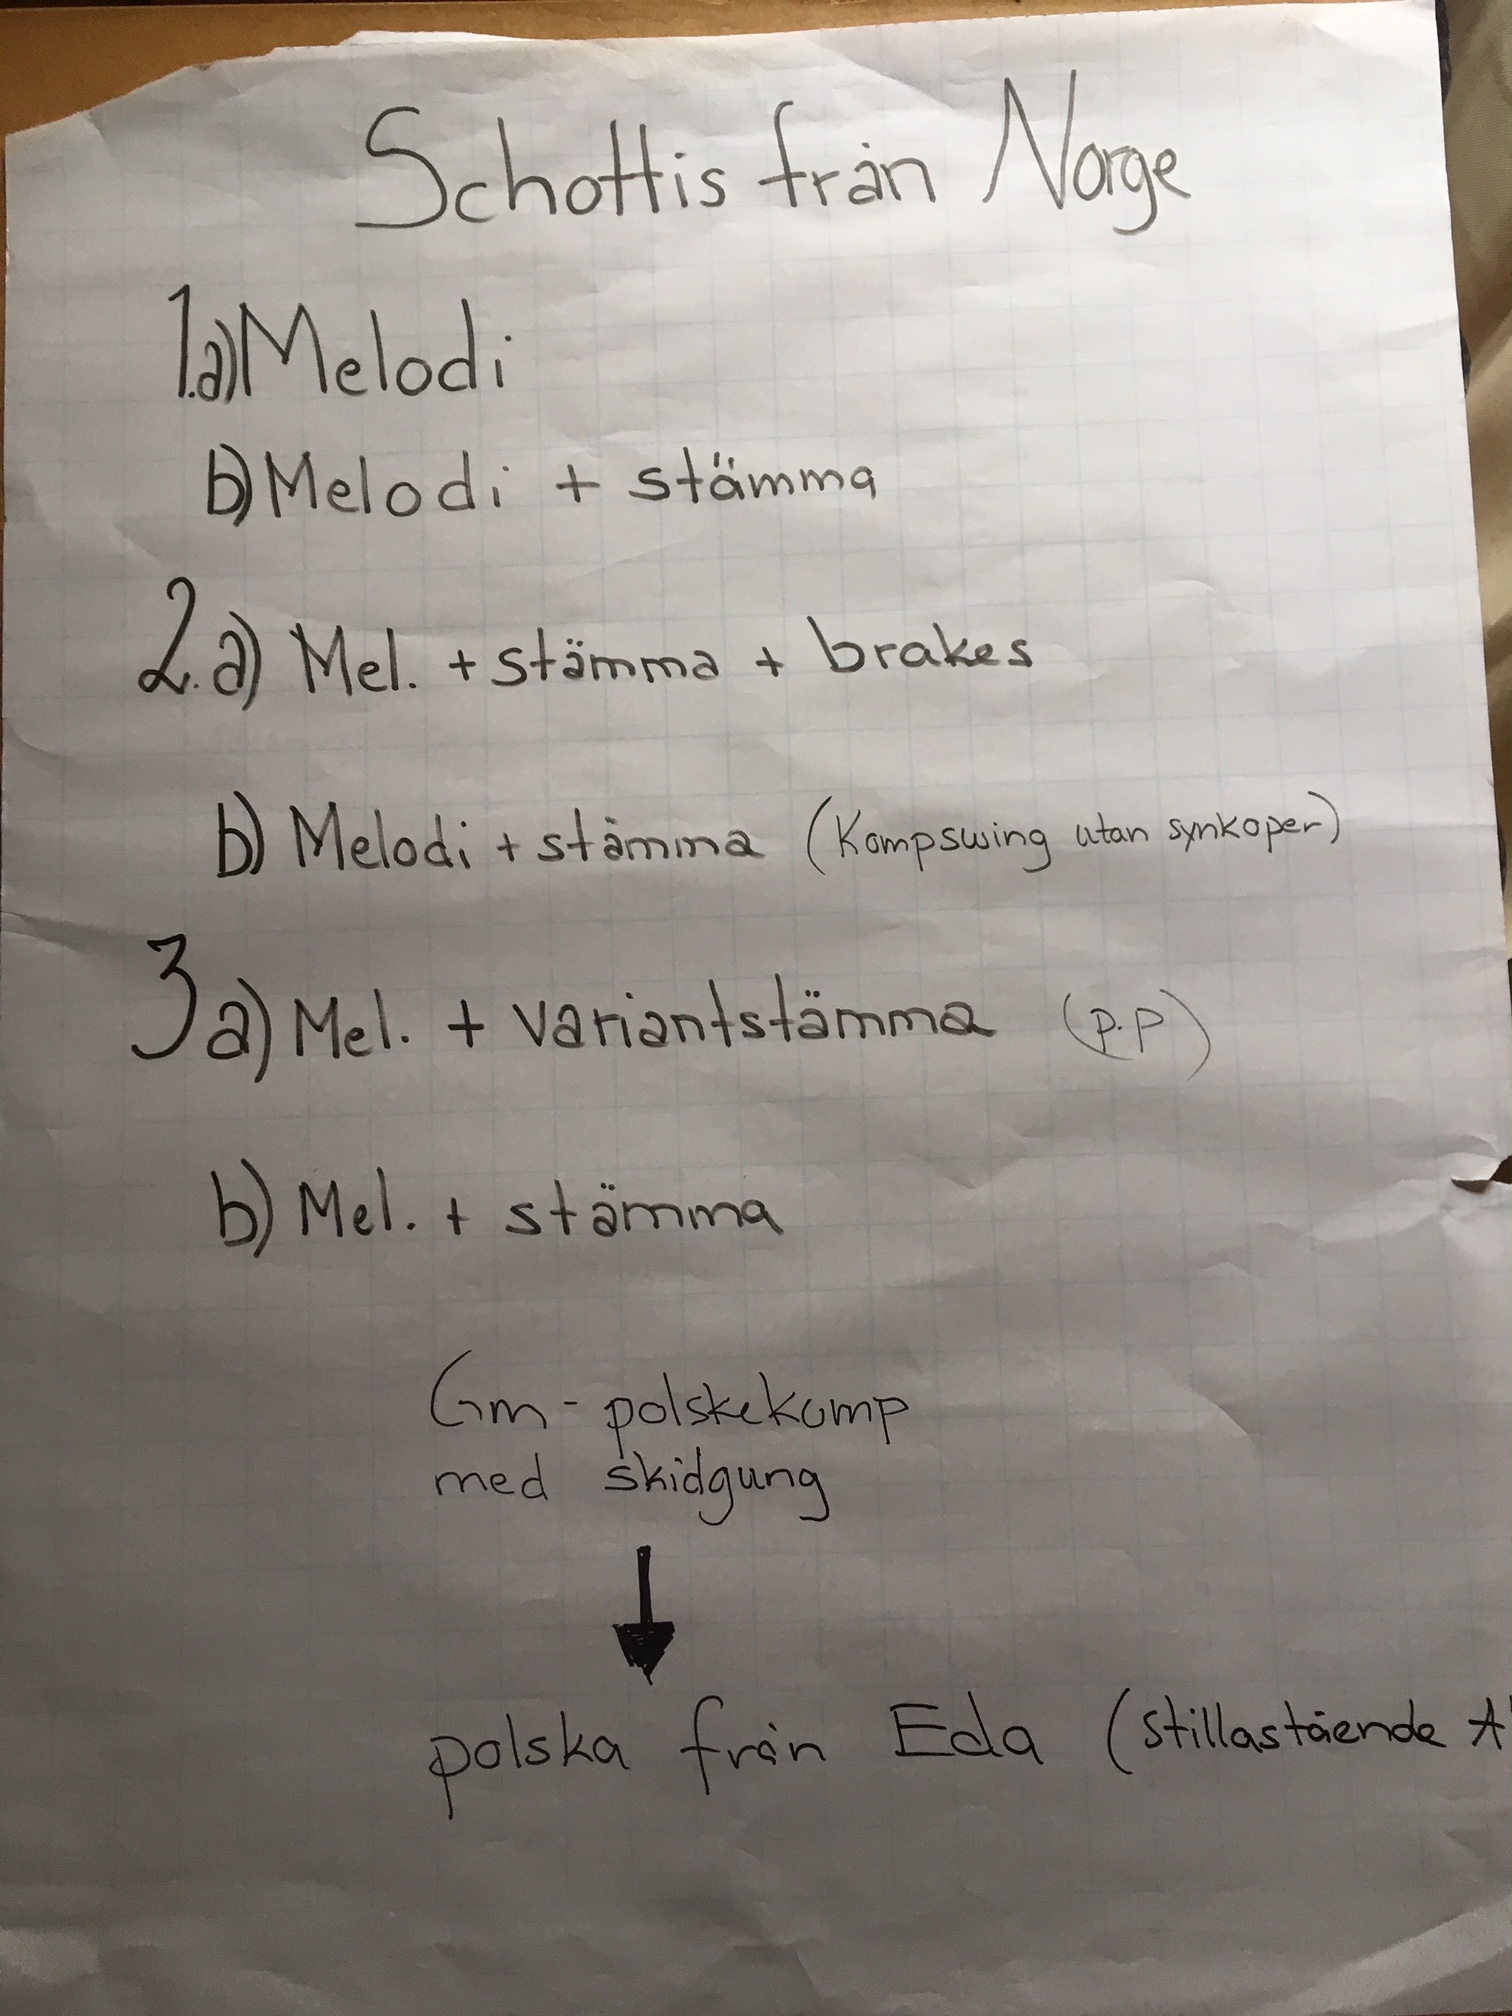 Schottis från Norge
1.a) Melodi
b) Melodi + stämma
2.a) Mel. + stämma + brakes
b) Melodi + stämma (Kompswing utan synkoper)
3 a) Mel. + variantstämma (p.p)
b) Mel. + stämma
Gm - polskekomp
med skidgung
polska från Eda (stillastående A